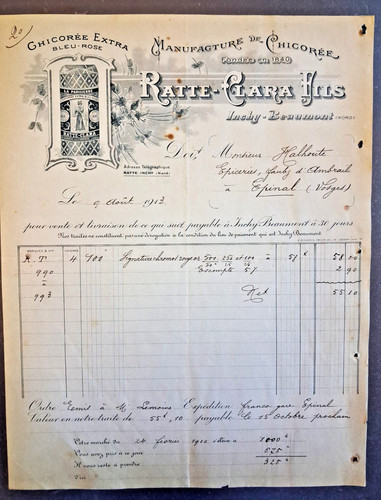 20
CHICORÉE EXTRA
BLEU-ROSE
MANUFACTURE DE CHICORÉE
Fondée en 1840
RATTE-CLARA FILS
Inchy-Beaumont (NORD)
LA PARISIENNE
RATTE-CLARA
Adresse Télégraphique
RATTE INCHY (Nord)
Doit Monsieur
Epiceries, faubg d'Ambrail
à Epinal (Vosges)
Le 9 Août 1912
pour vente et livraison de ce qui suit payable à Inchy-Beaumont à 30 jours
Nos traites ne constituent pas une dérogation à la condition du lieu de paiement qui est Inchy-Beaumont
R.T 4 400 500, 250 et 100 à 58 00
990 Escompte 5% 2 90
993 Net 55 10
Ordre Remis à M. Lemoine Expédition franco gare Epinal
Valeur en notre traite de 55f,10 payable le 15 Octobre prochain
Votre marché du 24 février 1912 était de 1000 k
Vous avez pris à ce jour
Il vous reste à prendre 325 k